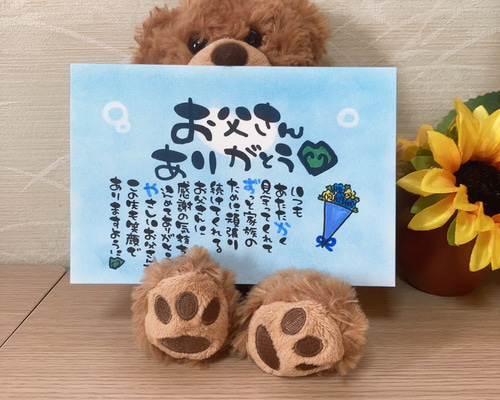 お父さん
ありがとう
いつも
あたたかく
見守ってくれて
ずっと家族の
ために頑張り
続けてくれる
お父さんに
感謝の気持ち
込めてありがとう
やさしいお父さん
この先も笑顔で
ありますよう…